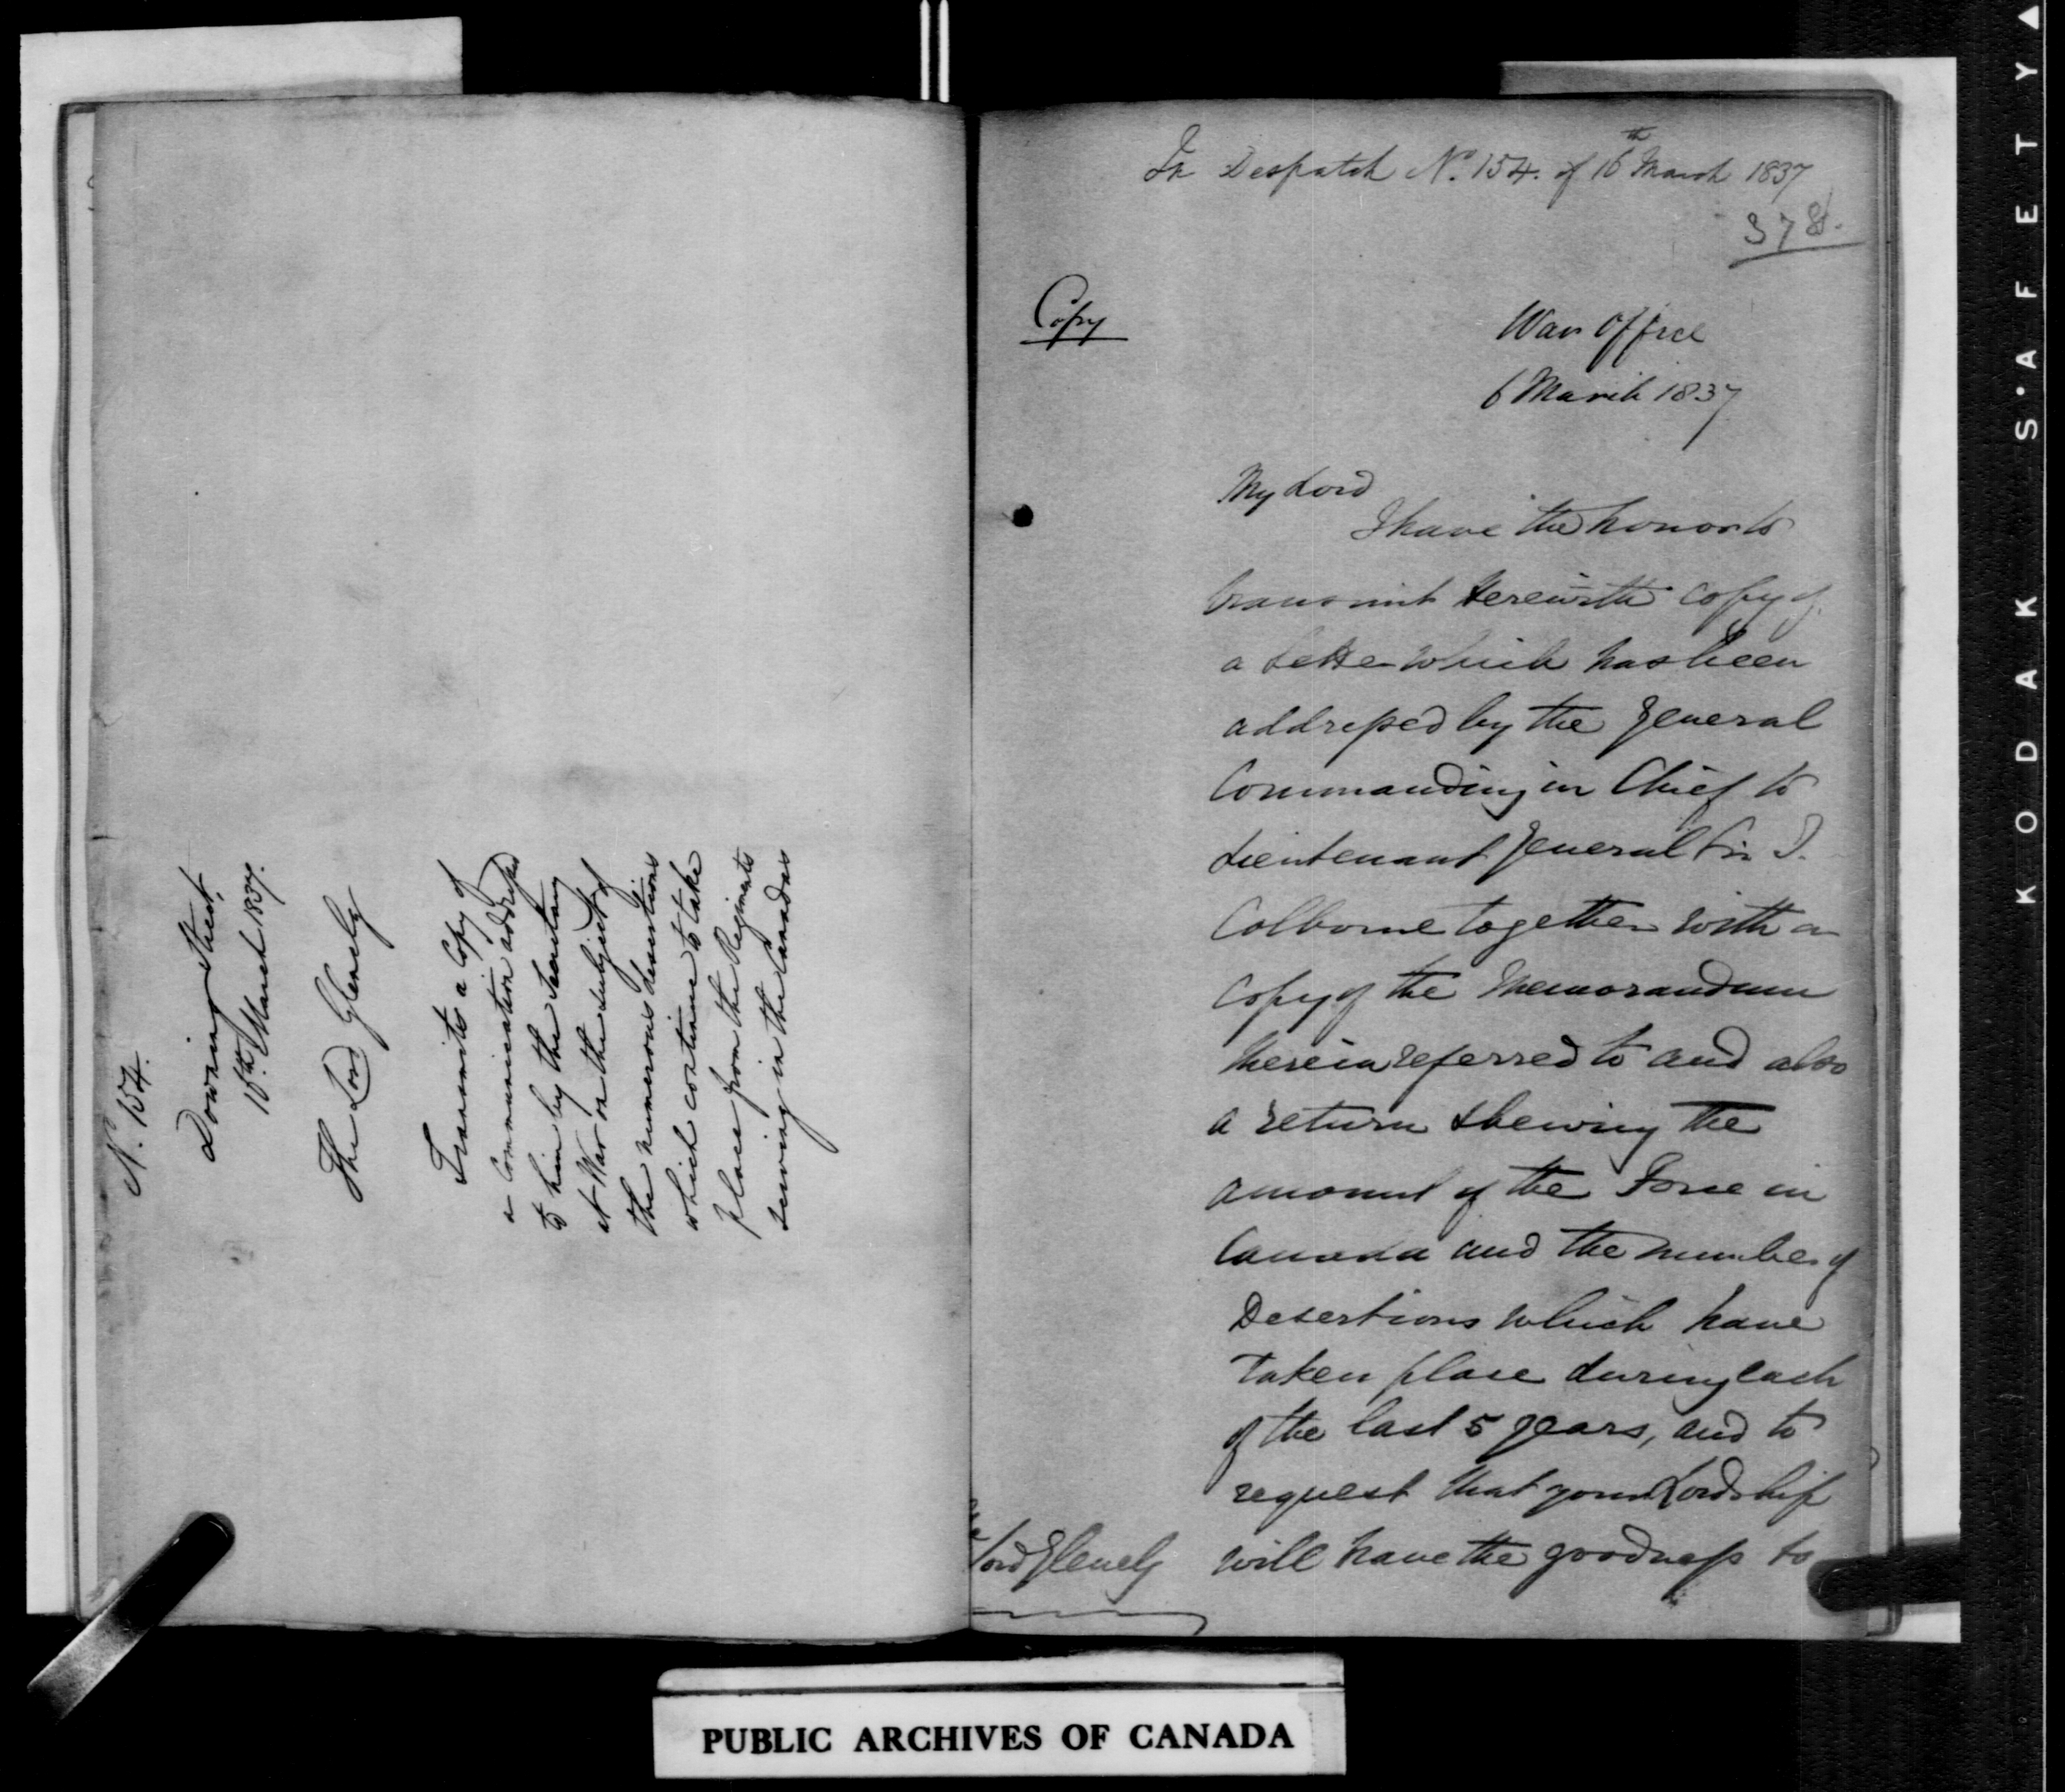 N. 154.
Downing Street,
16th March 1837.
The Lord Glenelg
Transmits a Copy of
a Communication addressed
to him by the Secretary
at War on the subject of
the numerous desertions
which continue to take
place from the Regiments
serving in the Canadas
In Despatch No. 154. of 16th March 1837
378.
Copy
War Office
6 March 1837
My Lord
I have the honor to
transmit herewith copy of
a Letter which has been
addressed by the General
Commanding in Chief to
Lieutenant General Sir J.
Colborne together with a
copy of the Memorandum
therein referred to and also
a return shewing the
amount of the Force in
Canada and the number of
Desertions which have
taken place during each
of the last 5 years, and to
request that your Lordship
will have the goodness to
Lord Glenelg
PUBLIC ARCHIVES OF CANADA
KODAK S'AFETY